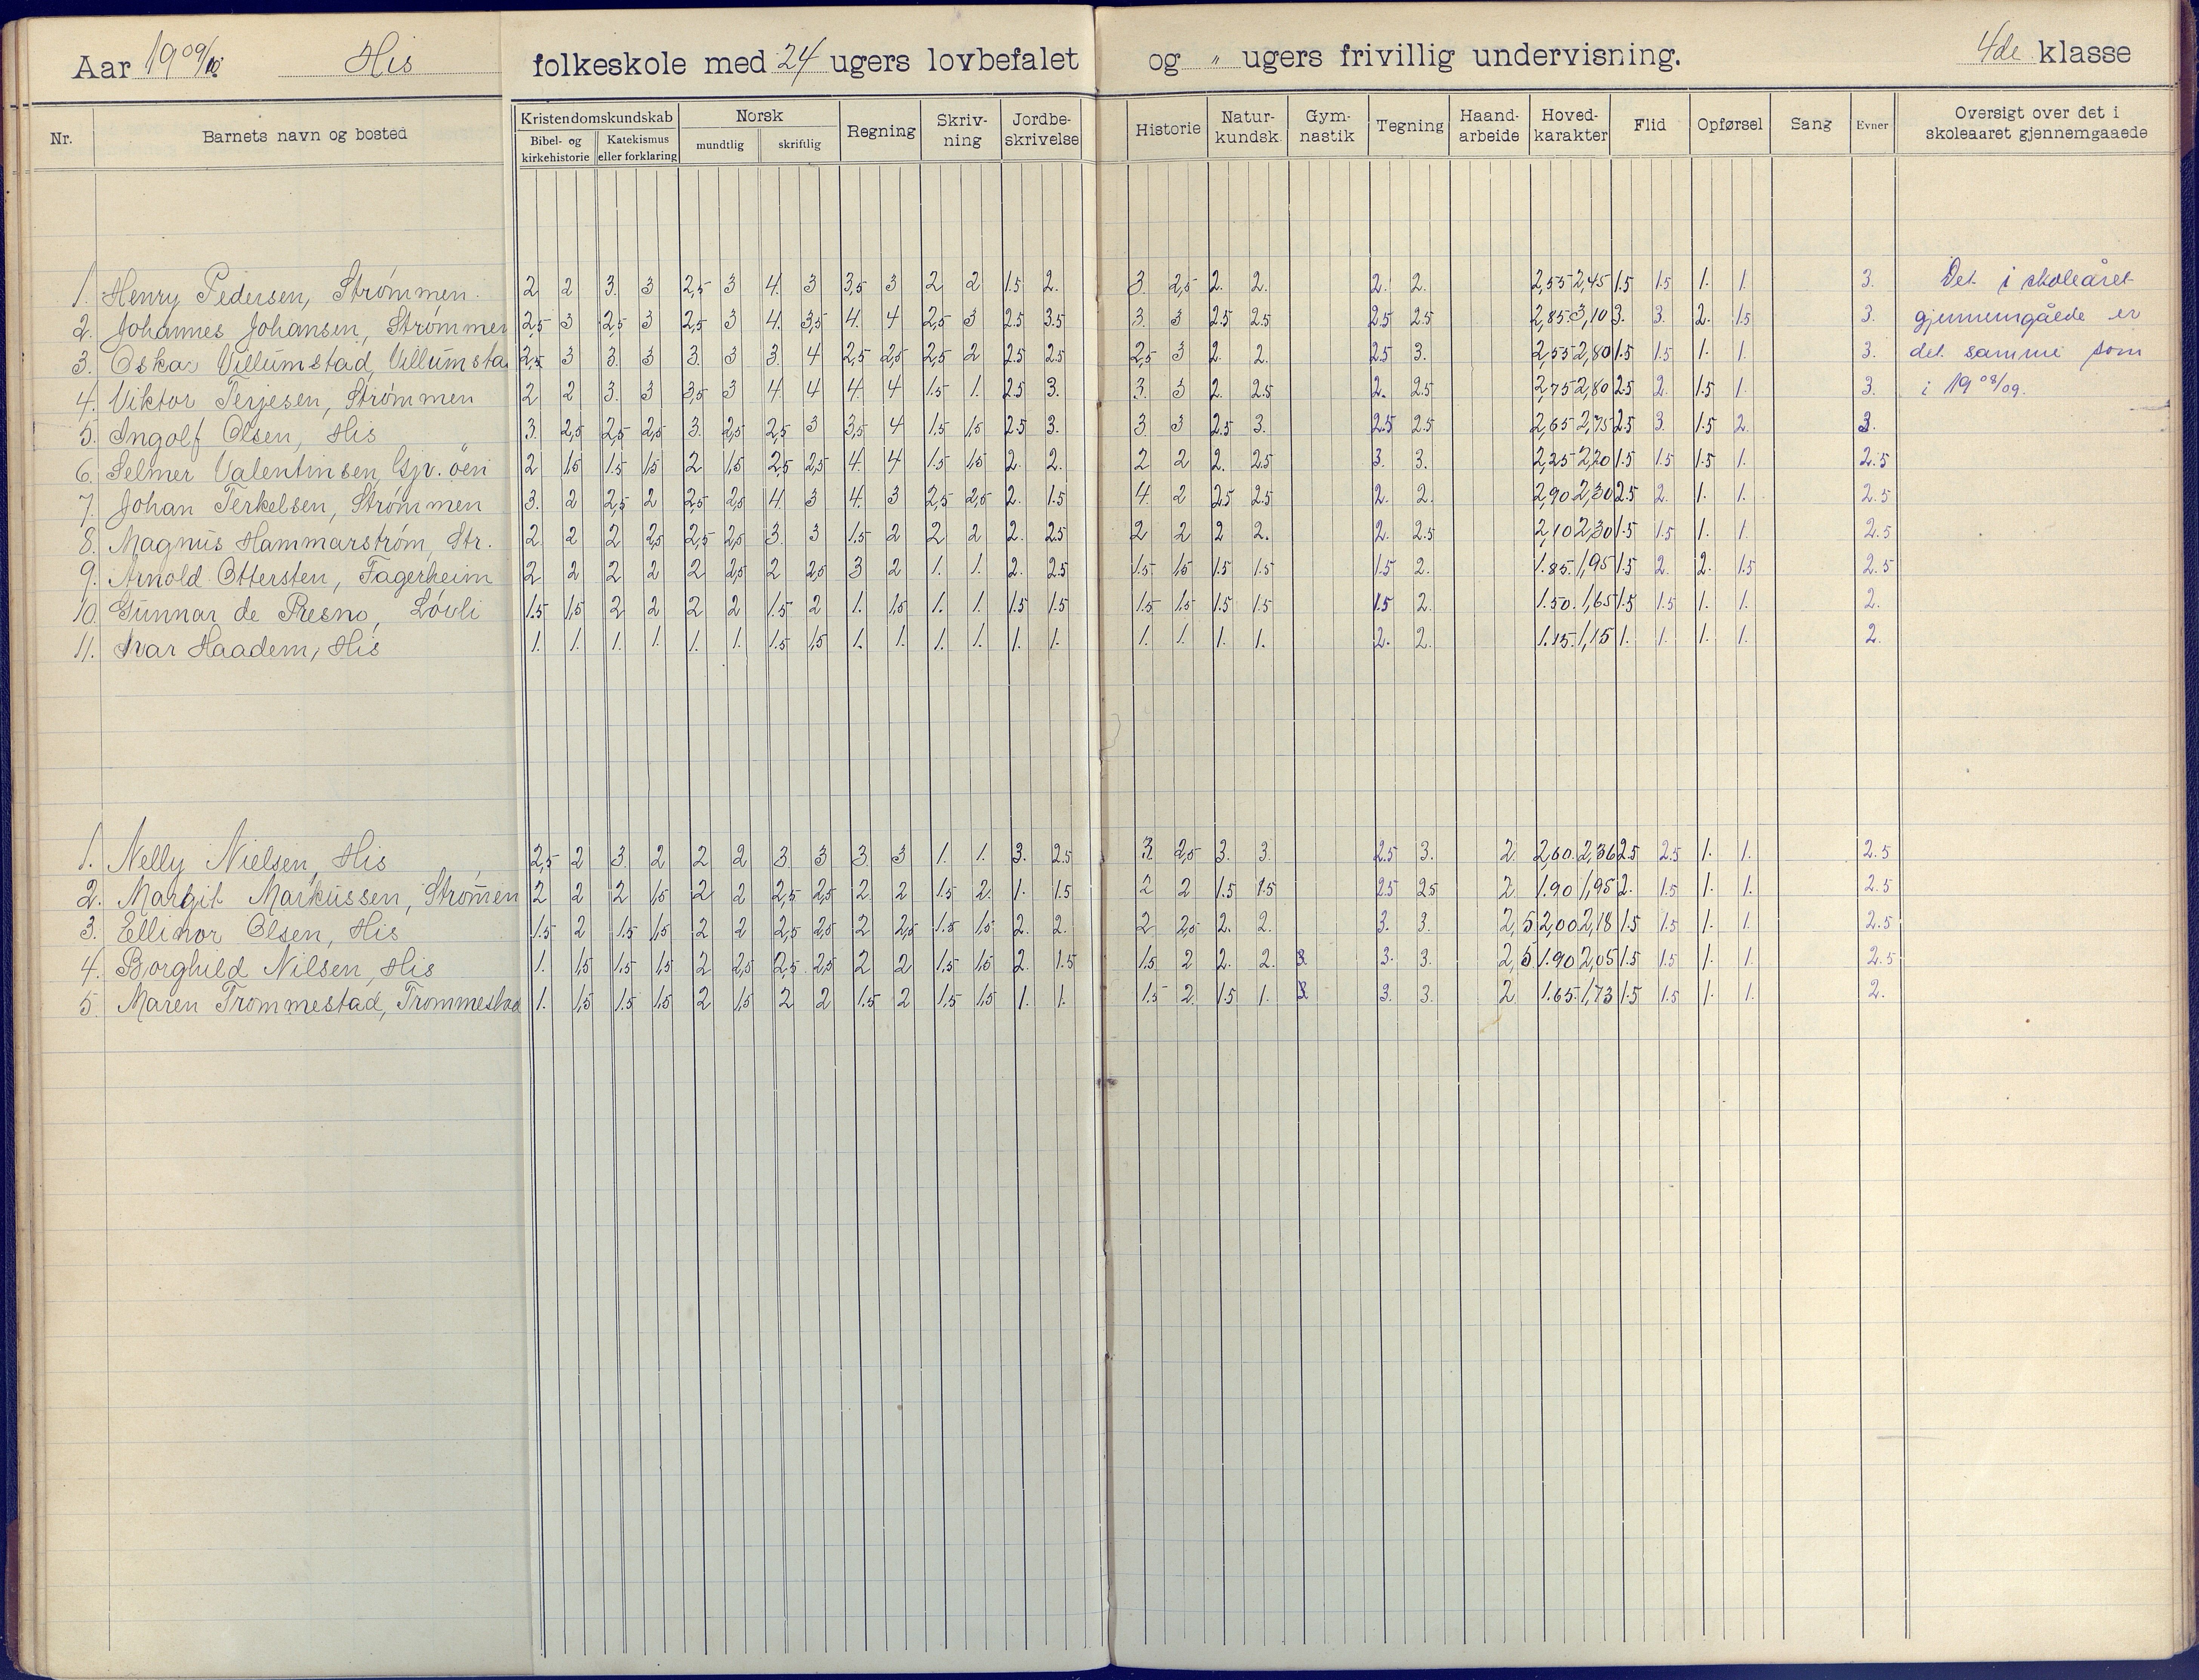 Aar 1909/10 His folkeskole med 24 ugers lovbefalet og „ ugers frivillig undervisning. 4de klasse
Nr. Barnets navn og bosted Kristendomskundskab Bibel- og kirkehistorie Katekismus eller forklaring Norsk mundtlig skriftlig Regning Skriv-ning Jordbe-skrivelse Historie Natur-kundsk. Gym-nastik Tegning Haand-arbeide Hoved-karakter Flid Opførsel Sang Evner Oversigt over det i skoleaaret gjennemgaaede
1. Henry Pedersen, Strømmen. 2 2 3. 3 2,5 3 4. 3 3,5 3 2 2 1.5 2. 3. 2,5 2. 2. 2. 2. 2,55 2,45 1.5 1.5 1. 1. 3. Det i skoleåret
2. Johannes Johansen, Strømmen 2,5 3 2,5 3 2,5 3 4. 3,5 4. 4 2,5 3 2.5 3.5 3. 3 2.5 2.5 2.5 2.5 2,85 3,10 3. 3. 2. 1.5 3. gjennemgåede er
3. Oskar Villumstad, Villumsta 2,5 3 3. 3 3. 3 3. 4 2,5 2,5 2,5 2 2.5 2.5 2,5 3 2. 2. 2.5 3. 2,55 2,80 1.5 1.5 1. 1. 3. det samme som
4. Viktor Terjesen, Strømmen 2 2 3. 3 3,5 3 4 4 4. 4 1.5 1. 2.5 3. 3. 3 2. 2.5 2. 2.5 2,75 2,80 2.5 2. 1.5 1. 3. i 1908/09.
5. Ingolf Olsen, His 3. 2,5 2,5 2,5 3. 2,5 2,5 3 3,5 4 1.5 1,5 2.5 3. 3 3 2.5 3. 2.5 2.5 2,65 2,75 2.5 3. 1.5 2. 3.
6. Selmer Valentinsen, Gjv. öen 2 1,5 1.5 1,5 2 1,5 2,5 2,5 4. 4 1.5 1,5 2. 2. 2 2 2. 2.5 3. 3. 2,25 2,20 1.5 1.5 1.5 1. 2.5
7. Johan Terkelsen, Strømmen 3. 2 2,5 2 2,5 2,5 4. 3 4. 3 2,5 2,5 2. 1.5 4 2 2.5 2.5 2. 2. 2,90 2,30 2.5 2. 1. 1. 2.5
8. Magnus Hammarstrøm, Str. 2 2 2 2,5 2,5 2,5 3. 3 1.5 2 2 2 2. 2.5 2 2 2 2. 2. 2.5 2,10 2,30 1.5 1.5 1. 1. 2.5
9. Arnold Ottersten, Fagerheim 2 2 2 2 2 2,5 2 2,5 3 2 1. 1. 2. 2.5 1.5 1,5 1.5 1.5 1.5 2. 1.85. 1,95 1.5 2. 2. 1.5 2.5
10. Gunnar de Presno, Lövli 1.5 1,5 2 2 2 2 1.5 2 1. 1,5 1. 1. 1.5 1.5 1.5 1.5 1.5 1.5 1.5 2. 1.50. 1,65 1.5 1.5 1. 1. 2.
11. Ivar Haadem, His 1. 1. 1. 1. 1. 1. 1.5 1,5 1. 1. 1. 1. 1. 1. 1. 1. 1. 1. 2. 2. 1.15. 1,15 1. 1. 1. 1. 2.
1. Nelly Nielsen, His 2,5 2 3. 2 2 2 3 3 3. 3 1. 1. 3. 2.5 3. 2,5 3. 3. 2.5 3. 2. 2,60. 2,36 2.5 2.5 1. 1. 2.5
2. Margit Markussen, Strøm̄en 2 2 2 1,5 2 2 2,5 2,5 2 2 1.5 2. 1. 1.5 2 2 1.5 1.5 2.5 2.5 2. 1.90 1,95 2. 1.5 1. 1. 2.5
3. Ellinor Olsen, His 1.5 2 1.5 1,5 2 2 2,5 2,5 2 2,5 1.5 1,5 2. 2. 2 2,5 2. 2. 3. 3. 2,5 2,00 2,18 1.5 1.5 1. 1. 2.5
4. Borghild Nilsen, His 1. 1,5 1.5 1,5 2 2,5 2,5 2,5 2 2 1.5 1,5 2. 1.5 1.5 2 2. 2. 3. 3. 2,5 1.90 2,05 1.5 1.5 1. 1. 2.5
5. Maren Trommestad, Trommestad 1. 1,5 1.5 1,5 2 1,5 2 2 1.5 2 1.5 1,5 1. 1. 1.5 2. 1.5 1. 3. 3. 2. 1.65. 1,73 1.5 1.5 1. 1. 2.